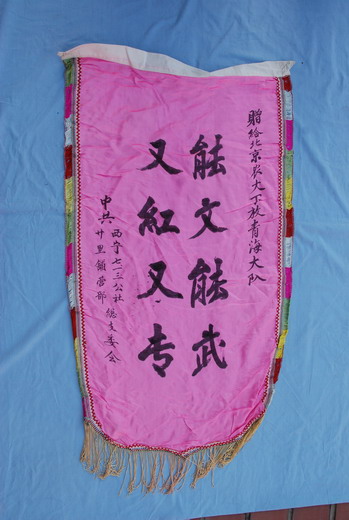 赠给北京农大下放青海大队
能文能武
又红又专
中共西宁七一三公社
廿里铺营部总支委会